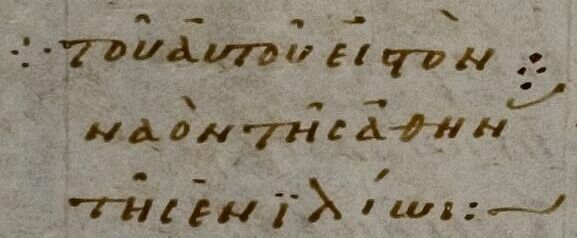 ·:· τοῦ ἀυτοῦ εἰς τὸν :·
ναὸν τῆς ἀθην
τῆς ἐν ϊλίωι :~